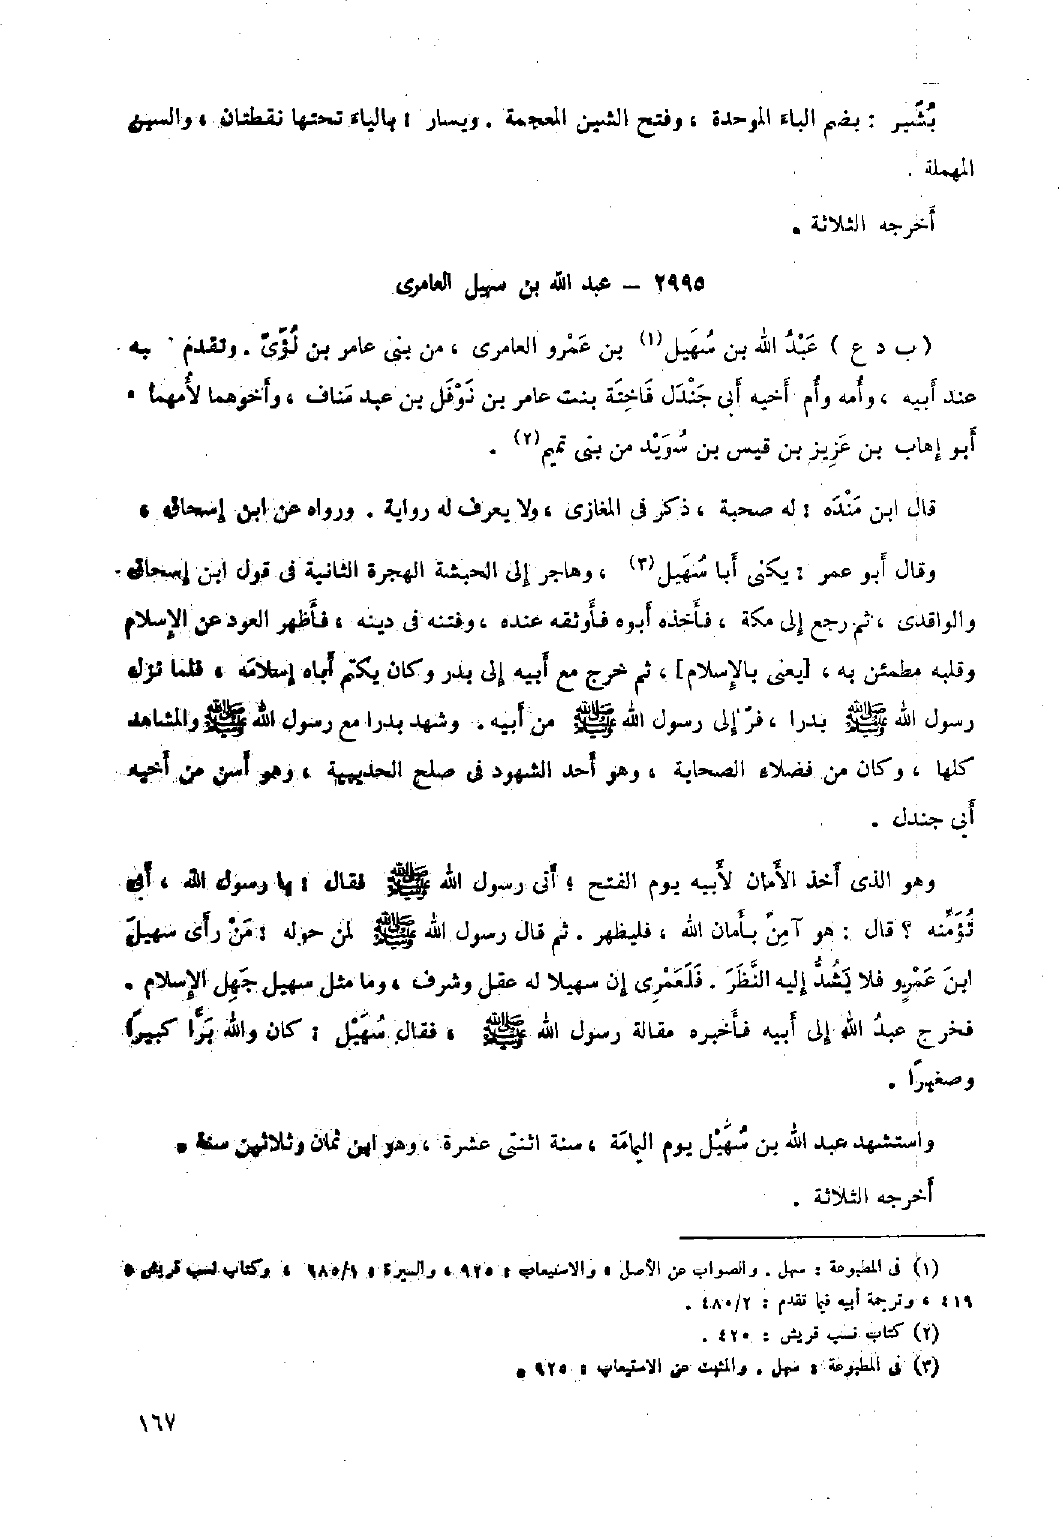 بُشَير : بضم الباء الموحدة ، وفتح الشين المعجمة . ويسار : بالياء تحتها نقطتان ، والسين
المهملة .
أَخرجه الثلاثة .
٢٩٩٥ – عبد الله بن سهيل العامرى
( ب د ع ) عَبْدُ الله بن سُهَيل(١) بن عَمْرو العامرى ، من بنى عامر بن لُؤَىّ . وتقدم به
عند أَبيه ، وأُمه وأُم أَخيه أَبى جَنْدَل فَاخِتَة بنت عامر بن نَوْفَل بن عبد مَناف ، وأَخوهما لأُمهما
أَبو إِهاب بن عَزِيز بن قيس بن سُوَيْد من بنى تميم(٢) .
قال ابن مَنْدَه : له صحبة ، ذكر فى المغازى ، ولا يعرف له رواية . ورواه عن ابن إِسحاق .
وقال أَبو عمر : يكنى أَبا سُهَيل(٣) ، وهاجر إِلى الحبشة الهجرة الثانية فى قول ابن إِسحاق
والواقدى ، ثم رجع إِلى مكة ، فأَخذه أَبوه فأَوثقه عنده ، وفتنه فى دينه ، فأَظهر العود عن الإِسلام
وقلبه مطمئن به ، [يعنى بالإِسلام] ، ثم خرج مع أَبيه إِلى بدر وكان يكتم أَباه إِسلامه ، فلما نزل
رسول الله ﷺ بدرا ، فرّ إِلى رسول الله ﷺ من أَبيه . وشهد بدرا مع رسول الله ﷺ والمشاهد
كلها ، وكان من فضلاء الصحابة ، وهو أَحد الشهود فى صلح الحديبية ، وهو أَسن من أَخيه
أَبى جندل .
وهو الذى أَخذ الأَمان لأَبيه يوم الفتح ؛ أَتى رسول الله ﷺ فقال : يا رسول الله ، أَبى
تُؤَمِّنه ؟ قال : هو آمِنٌ بأَمان الله ، فليظهر . ثم قال رسول الله ﷺ لمن حوله : مَنْ رأَى سهيلَ
ابنَ عَمْرٍو فلا يَشُدُّ إِليه النَّظَرَ . فَلَعَمْرِى إِن سهيلا له عقل وشرف ، وما مثل سهيل جَهِل الإِسلام .
فخرج عبدُ الله إِلى أَبيه فأَخبره مقالة رسول الله ﷺ ، فقال سُهَيْل : كان والله بَرًّا كبيرًا
وصغيرًا .
واستشهد عبد الله بن سُهَيْل يوم اليمامَة ، سنة اثنتى عشرة ، وهو ابن ثمان وثلاثين سنة .
أَخرجه الثلاثة .
(١) فى المطبوعة : سهل . والصواب عن الأصل ، والاستيعاب : ٩٢٥ ، والسيرة : ١/ ٦٨٥ ، وكتاب نسب قريش :
٤١٩ ، وترجمة أبيه فيما تقدم : ٢/ ٤٨٠ .
(٢) كتاب نسب قريش : ٤٢٠ .
(٣) فى المطبوعة : سهل . والمثبت عن الاستيعاب : ٩٢٥ .
١٦٧